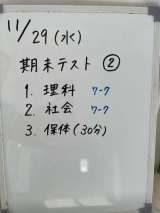 11/29(水)
期末テスト ②
1. 理科 ワーク
2. 社会 ワーク
3. 保体(30分)